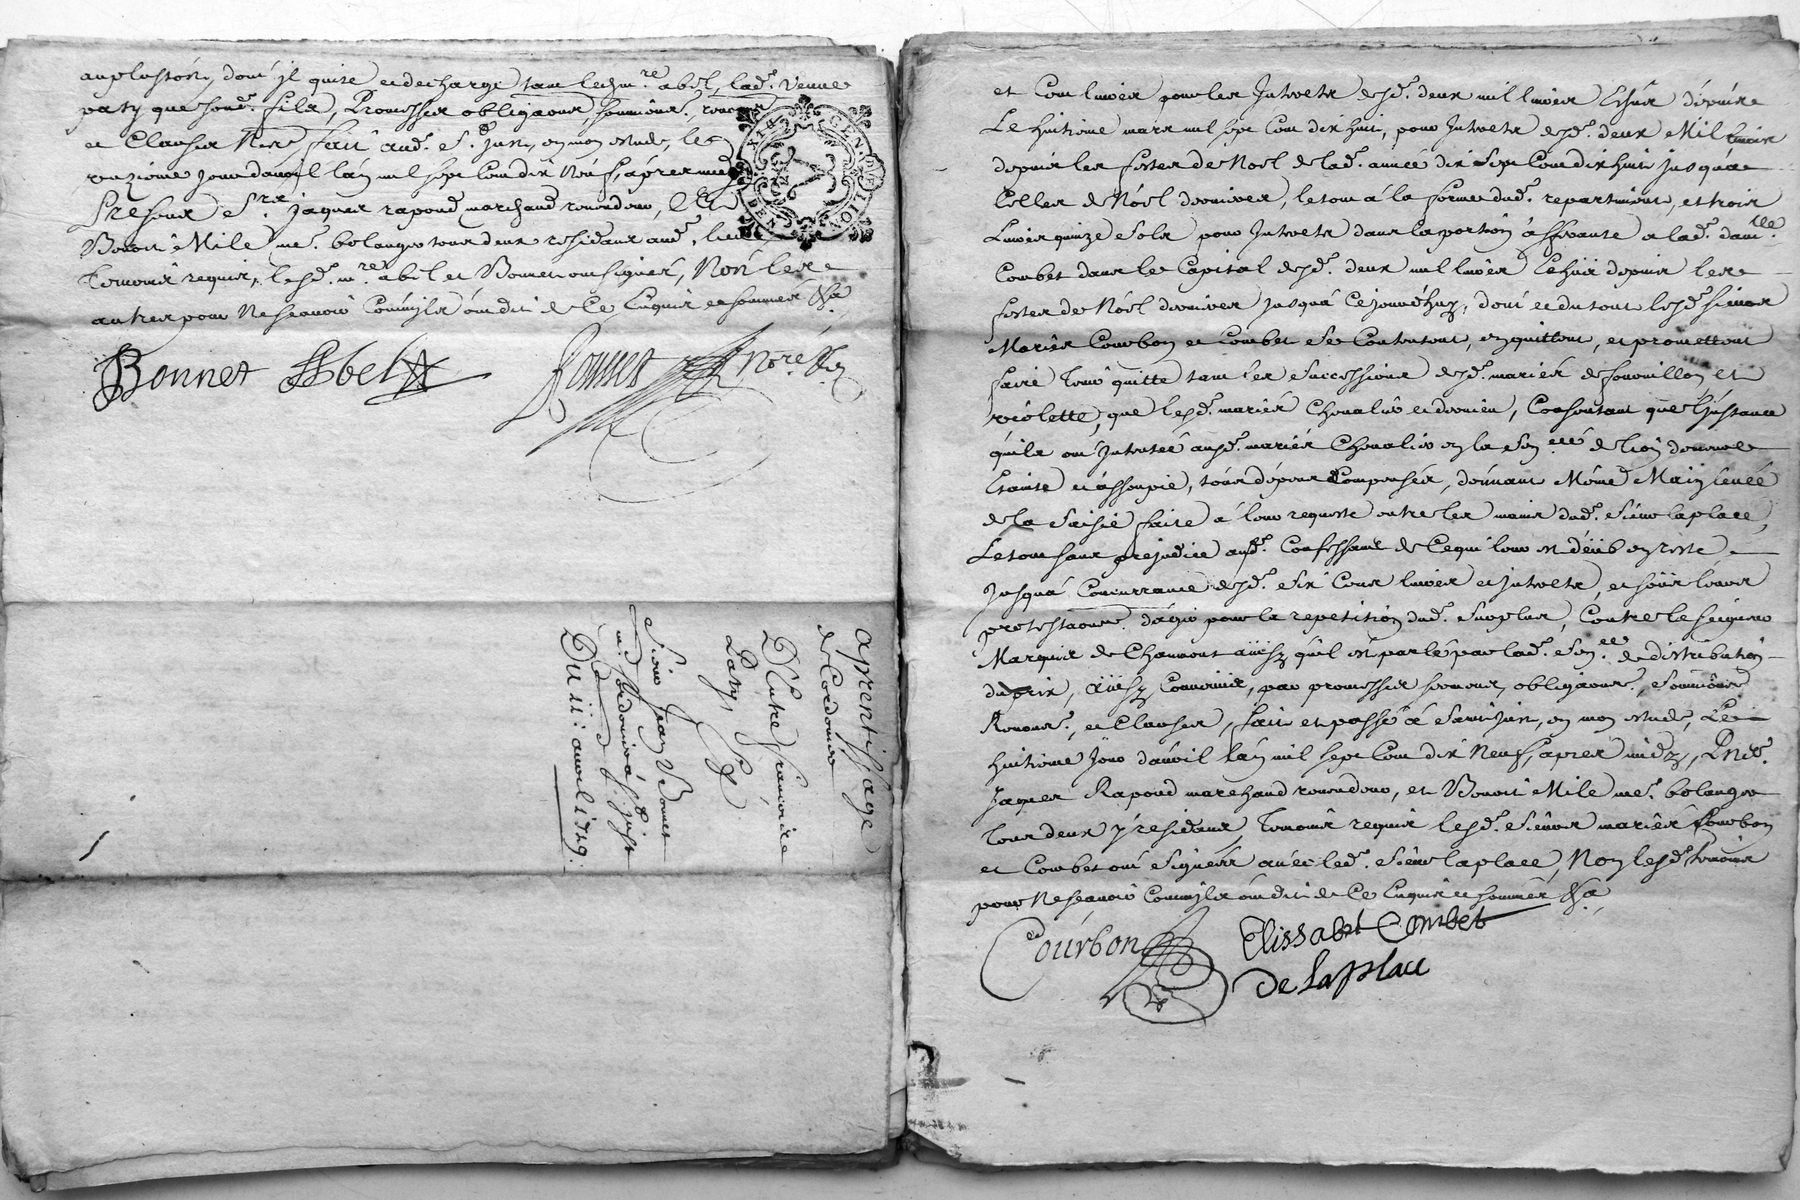 dont il quitte et decharge tant led. m.re abel, lad. veuve
paty que sond. fils, Promesses obligaons, soumions,
et Clauses &c. fait aud. S.t Just, en mon estude, le
onzieme jour d'avril l'an mil sept Cent dix Neuf, apres midy
S.r jaques rapoud marchand
Benoit Mile me. bolanger tous deux residans aud. lieu
temoins requis, lesd. m.re abel et Bonnet ont signés, Non les
autres pour Ne scavoir Comm'ils ont dit de Ce Enquis et sommés &a
GEN. DE LYON
Bonnet Abel
N.re R.
aprentissage
de Cordonier
D'Entre francoise
Paty, &
Sieur Jean Bonnet
m.d Cordonier à S.t Just
Du 11 avril 1719.
et Cent livres pour les Interets desd. deux mil livres Echus depuis
Le huitieme mars mil sept Cent dix huit, pour Interets desd. deux Mil livres
depuis les festes de Noel de lad. année dix sept Cent dix huit jusqu'a
Celles de Noel dernieres, le tout à la forme dud. repartiment, et trois
Livres quinze sols pour Interets dans la portion afferante a lad. dam.lle
Combet dans le Capital desd. deux mil livres Echüs depuis les
festes de Noel dernieres jusqu'à Cejourd'huy, dont et du tout lesd. sieurs
Mariés Courbon et Combet se Contentent, en quittent, et promettent
faire tenir quitte tant les successions desd. mariés de fenouillon et
violette, que lesd. mariés Chevalier et dernieu, Consentant que l'Instance
qu'ils ont Intentée auxd. mariés Chevalier en la Sen.cée de lion demeure
Etainte et assoupie, sans depens Compensés, donnant Même Main levée
de la Saisie faite à leur requeste entre les mains dud. sieur laplace,
Le tout sans prejudice auxd. Confessants de Ce qui leur est dëub en reste
jusqu'à Concurrance desd. six Cens livres et interets, et sous leurs
protestaons d'agir pour la repetition dud. surplus, Contre le seigneur
Marquis de Chaumont aïnsy qu'il est parlé par lad. sen.ce de distribution
du prix, aïnsy Convenus, par promesses sermens, obligaons, soumions
Renons, et Clauses, fait et passé à Saint Just, en mon estude, Le
huitieme jour d'avril l'an mil sept Cent dix Neuf, apres midy, Pnts.
Jaques Rapoud marchand et Benoit Mile me. bolanger
tous deux y residans, temoins requis lesd. sieurs mariés Courbon
et Combet ont signés avec led. sieur laplace, Non lesd. temoins
pour Ne scavoir Comm'ils ont dit de Ce Enquis et sommés &a
Courbon
Elissabet Combet
De Laplace